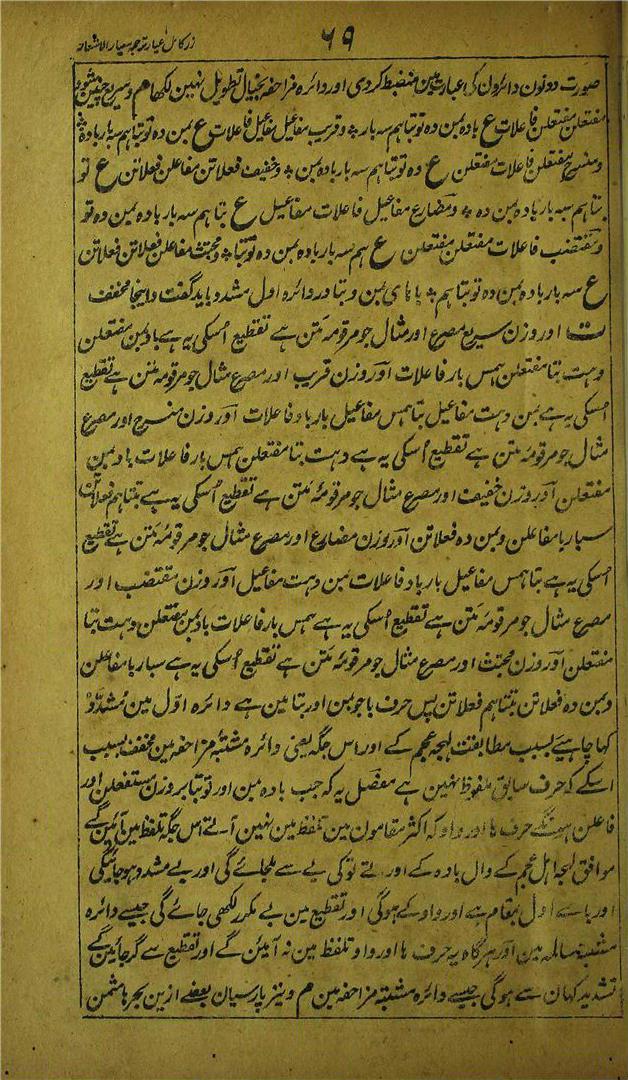 زر کامل عیار ترجمہ معیار الاشعار
۶۹
صورت دونون دائرون کی عبارت مین منضبط کردی اور دائرہ مزاحفہ بخیال تطویل نہین لکھا م و سریع چنین شود
مفتعلن مفتعلن فاعلات ع بادہ بمن دہ تو بتا ہم سہ بار و قریب مفاعیل مفاعیل فاعلات ع بمن دہ تو بتا ہم سہ بار بادہ
و منسرح مفتعلن فاعلات مفتعلن ع دہ تو بتا ہم سہ بار بادہ بمن و خفیف فعلاتن مفاعلن فعلاتن ع تو
بتا ہم سہ بار بادہ بمن دہ و مضارع مفاعیل فاعلات مفاعیل ع بتا ہم سہ بار بادہ بمن دہ تو
و مقتضب فاعلات مفتعلن مفتعلن ع ہم سہ بار بادہ بمن دہ تو بتا و مجتث مفاعلن فعلاتن فعلاتن
ع سہ بار بادہ بمن دہ تو بتا ہم با بای بمن و بتا در دائرہ اول مشدد باید گفت و اینجا مخفف
ت اور وزن سریع مصرع اور مثال جو مرقومہ متن ہے تقطیع اُسکی یہ ہے بادبمن مفتعلن
دہت بتا مفتعلن ہمس بار فاعلات اور وزن قریب اور مصرع مثال جو مرقومہ متن ہے تقطیع
اُسکی یہ ہے بمن دہت مفاعیل بتا ہمس مفاعیل بار باد فاعلات اور وزن منسرح اور مصرع
مثال جو مرقومہ متن ہے تقطیع اُسکی یہ ہے دہت بتا مفتعلن ہمس بار فاعلات بادبمن
مفتعلن اور وزن خفیف اور مصرع مثال جو مرقومہ متن ہے تقطیع اُسکی یہ ہے بتتا ہم فعلاتن
سبار با مفاعلن دبمن دہ فعلاتن اور وزن مضارع اور مصرع مثال جو مرقومہ متن ہے تقطیع
اُسکی یہ ہے بتا ہمس مفاعیل بار باد فاعلات بمن دہت مفاعیل اور وزن مقتضب اور
مصرع مثال جو مرقومہ متن ہے تقطیع اُسکی یہ ہے ہمس بار فاعلات بادبمن مفتعلن دہت بتا
مفتعلن اور وزن مجتث اور مصرع مثال جو مرقومہ متن ہے تقطیع اُسکی یہ ہے سبار با مفاعلن
دبمن دہ فعلاتن بتتا ہم فعلاتن پس حرف با جو بمن اور بتا مین ہے دائرہ اوّل مین مُشدّد
کہا چاہیے بسبب مطابقت لہجہ عجم کے اور اس جگہ یعنی دائرہ مشتبہ مزاحفہ مین مخفف بسبب
اسکے کہ حرف سابق ملفوظ نہین ہے مفصل یہ کہ جب بادہ بمن اور تو بتا بر وزن مستفعلن اور
فاعلن ہونگے حرف ہا اور واو کہ اکثر مقامون مین تلفظ مین نہین آتے اس جگہ تلفظ مین آئین گے
موافق لہجہ اہل عجم کے دال بادہ کے اور تے تو کی بے سے ملجائے گی اور بے مشدد ہوجائیگی
اور باے اول بمقام ہے اور واو کے ہوگی اور تقطیع مین بے مکرر لکھی جائے گی جیسے دائرہ
مشتبہ سالمہ مین اور ہرگاہ یہ حرف ہا اور واو تلفظ مین نہ آئین گے اور تقطیع سے گرجائین گے
تشدید کہان سے ہوگی جیسے دائرہ مشتبہ مزاحفہ مین م و نیز پارسیان بعضے ازین بحرہا مثمن